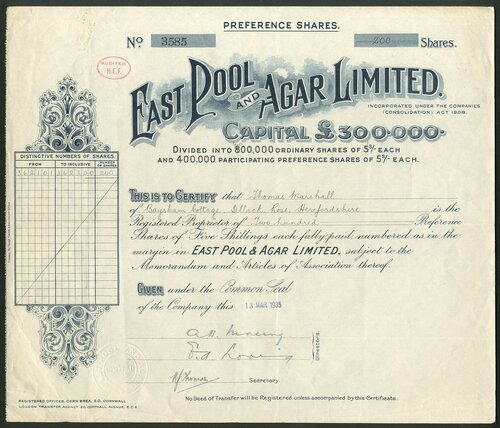 PREFERENCE SHARES.
No 3585 200 Shares.
AUDITED
H.E.F.
EAST POOL AND AGAR LIMITED.
INCORPORATED UNDER THE COMPANIES
(CONSOLIDATION) ACT 1908.
CAPITAL £300,000.
DIVIDED INTO 800,000 ORDINARY SHARES OF 5/- EACH
AND 400,000 PARTICIPATING PREFERENCE SHARES OF 5/- EACH.
DISTINCTIVE NUMBERS OF SHARES.
FROM TO INCLUSIVE NUMBER OF SHARES
362101 362300 200
THIS IS TO CERTIFY that Thomas Marshall
of Baysham Cottage, Ross, Herefordshire is the
Registered Proprietor of Two hundred Preference
Shares of Five Shillings each fully paid numbered as in the
margin in EAST POOL & AGAR LIMITED, subject to the
Memorandum and Articles of Association thereof.
GIVEN under the Common Seal
of the Company this 13 MAR 1935
Directors.
Secretary.
REGISTERED OFFICES, CARN BREA, S.O. CORNWALL
LONDON TRANSFER AGENCY 20, COPTHALL AVENUE, E.C.2.
No Deed of Transfer will be Registered unless accompanied by this Certificate.